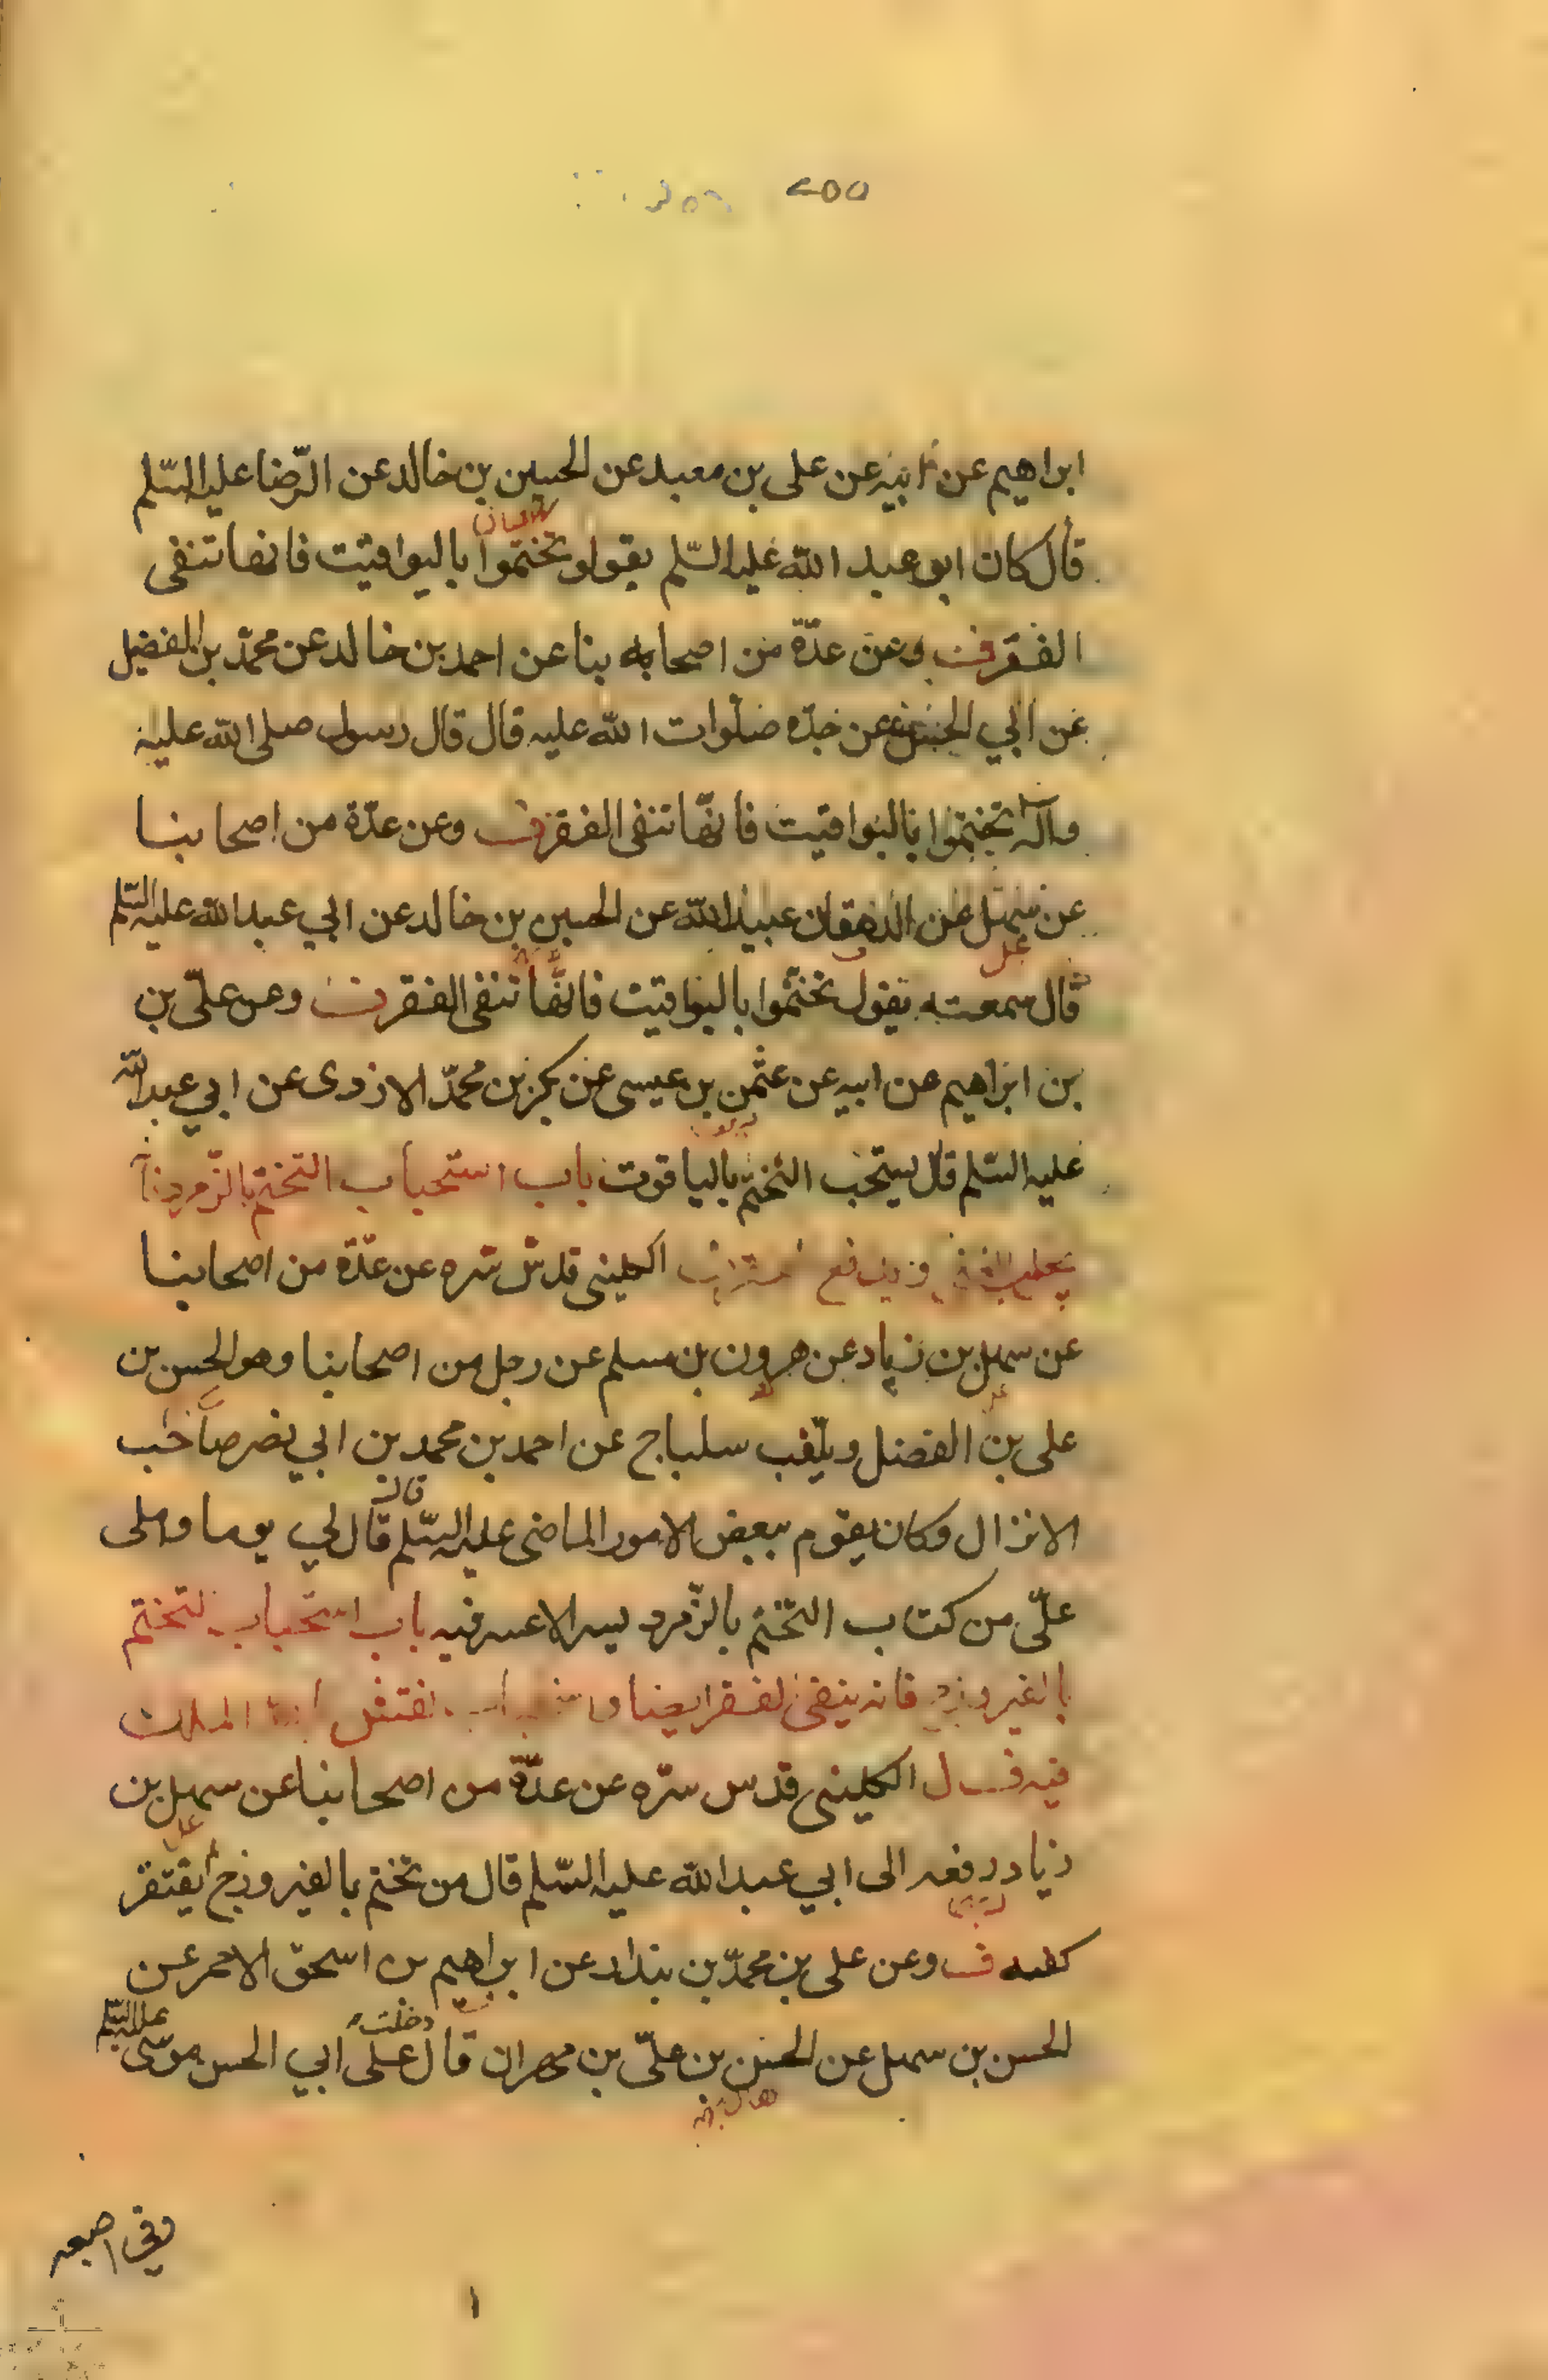 ٢٥٥
ابراهيم عن ابيه عن على بن معبد عن الحسين بن خالد عن الرّضا عليه السّلم
قال كان ابو عبد الله عليه السّلم يقول تختموا باليواقيت فانها تنفى
الفقر ف وعن عدّة من اصحابنا عن احمد بن خالد عن محمّد بن الفضيل
عن ابي الحسن عن جدّه صلوات الله عليه قال قال رسول صلى الله عليه
وآله تختموا باليواقيت فانّها تنفى الفقر ف وعن عدّة من اصحابنا
عن سهل عن الدهقان عبيد الله عن الحسين بن خالد عن ابي عبد الله عليه السّلم
قال سمعته يقول تختّموا باليواقيت فانّها تنفى الفقر ف وعن علىّ بن
بن ابراهيم عن ابيه عن عثمن بن عيسى عن بكر بن محمّد الازدى عن ابي عبد الله
عليه السّلم قال يستحب التختّم بالياقوت باب استحباب التختم بالزّمرد
ويدفع الكلينى قدس سره عن عدّة من اصحابنا
عن سهل بن زياد عن هرون بن مسلم عن رجل من اصحابنا وهو الحسن بن
على بن الفضل ويلّقب سلباج عن احمد بن محمد بن ابي نصر صاحب
الانزال وكان يقوم ببعض الامور الماضى عليه السّلم قال لي يوما واملى
علّى من كتاب التختم بالزّمرد يسر لا عسر فيه باب استحباب التختم
بالفيروزج فانه ينفى الفقر ايضا نقش الملك
فيه ف ل الكلينى قدس سرّه عن عدّة من اصحابنا عن سهل بن
زياد رفعه الى ابي عبد الله عليه السّلم قال من تختم بالفيروزج لم يفتقر
كفه ف وعن على بن محمّد بن بندار عن ابراهيم بن اسحق الاحمر عن
الحسن بن سهل عن الحسن بن علىّ بن مهران قال دخلت على ابي الحسن موسى عليه السّلم
وفي اصبعه